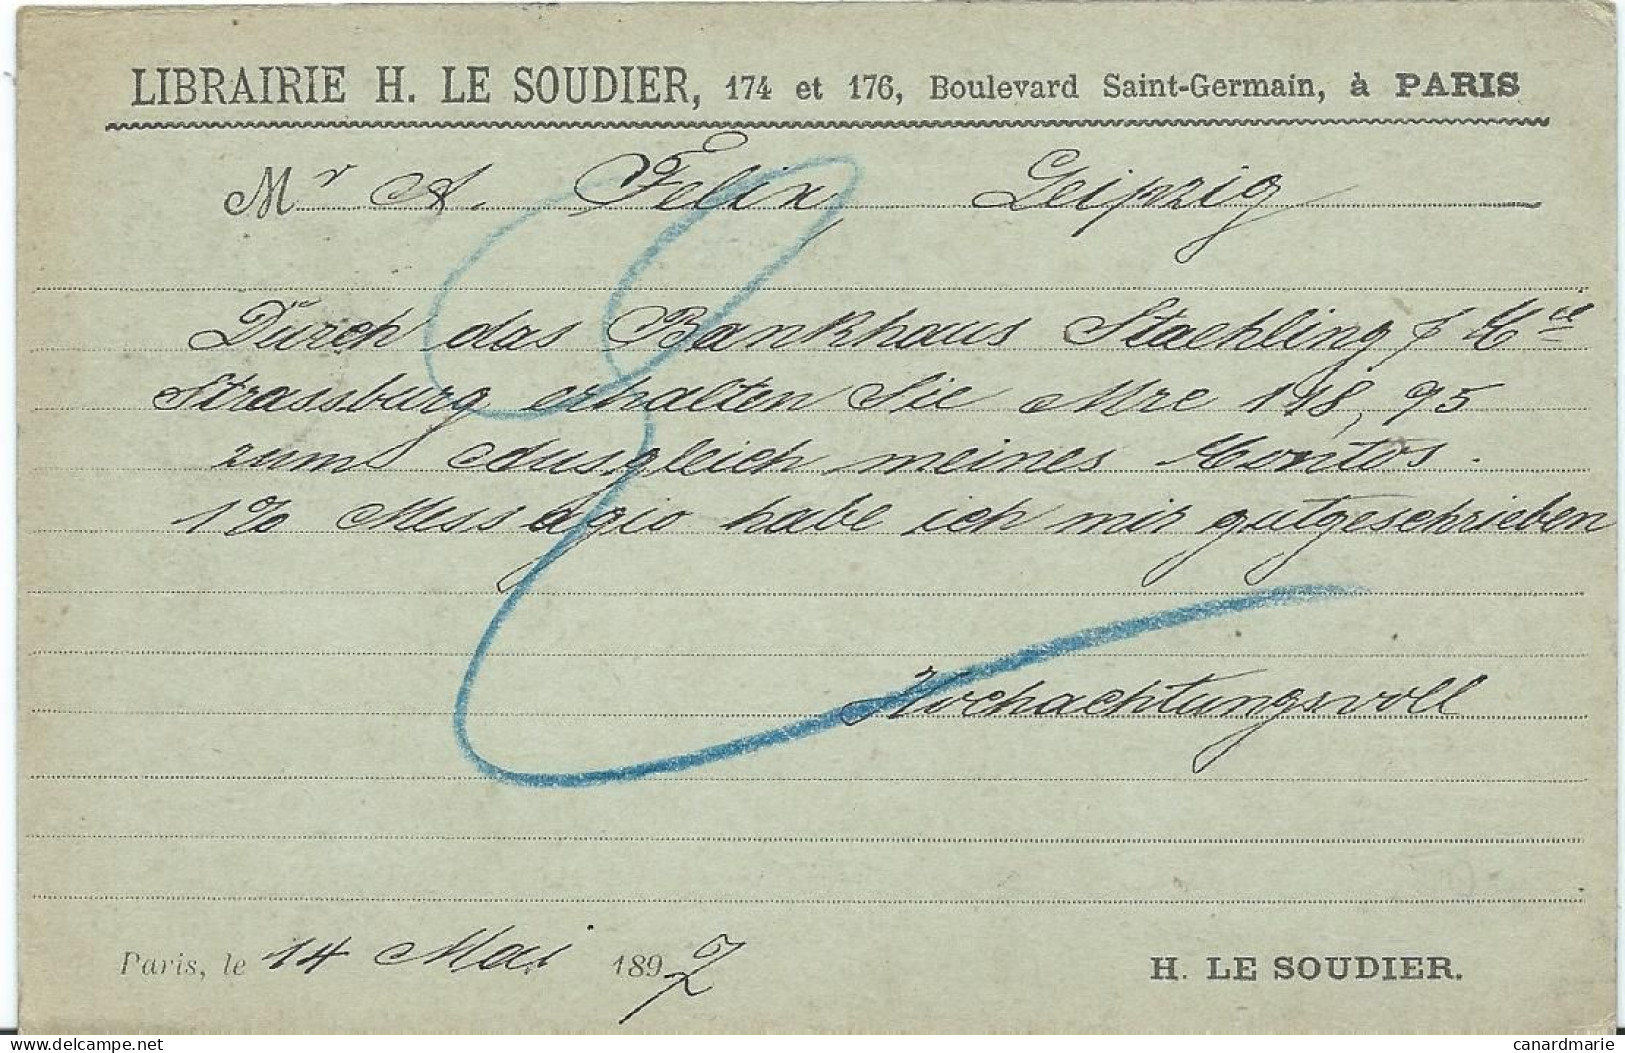 LIBRAIRIE H. LE SOUDIER, 174 et 176, Boulevard Saint-Germain, à PARIS
Mr A. Felix, Leipzig
Durch das Bankhaus Staehling & Cie
Strassburg erhalten Sie Mre 198,95
zum Ausgleich meines Contos.
1% Messagio habe ich mir gutgeschrieben
Hochachtungsvoll
Paris, le 14 Mai 1897
H. LE SOUDIER.
delcampe.net
canardmarie